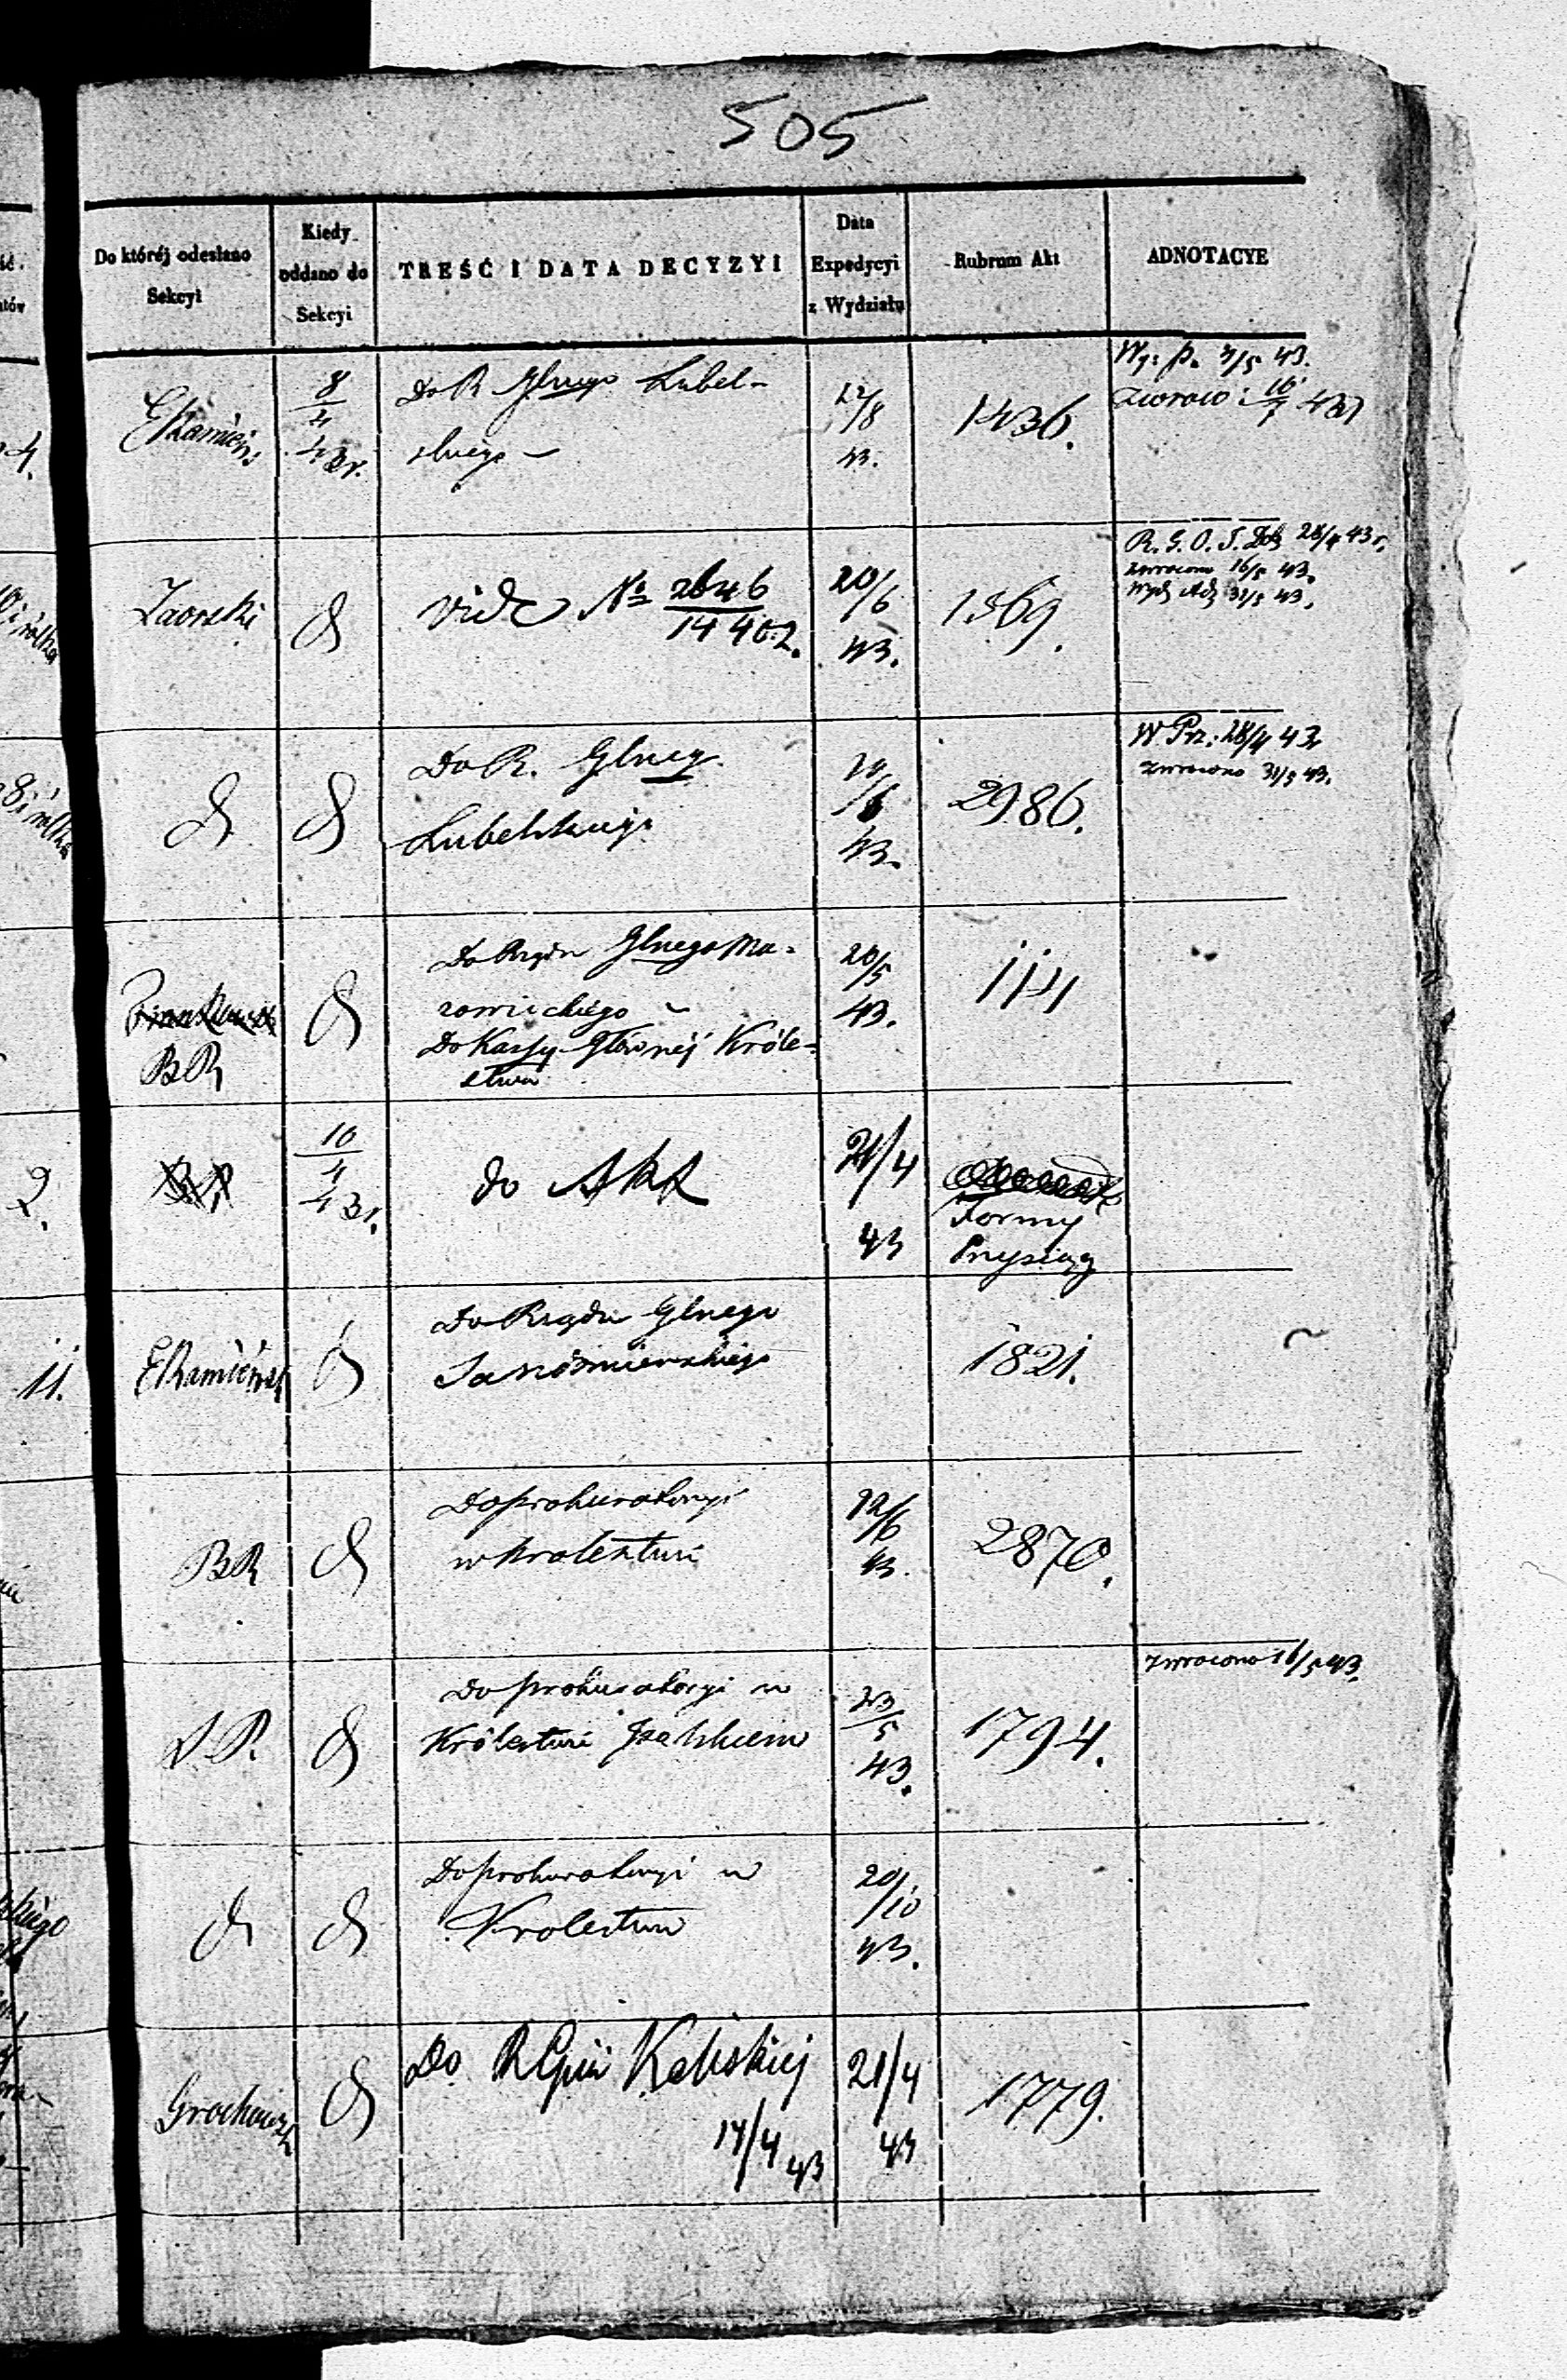 505
Do któréj odesłano
Sekcyi
Kiedy
oddano do
Sekcyi
TREŚĆ I DATA DECYZYI
Data
Expedycyi
z Wydziału
Rubrum Akt
ADNOTACYE
8
4
43r.
Do R Glnego Lubel-
skiego -
12/8
43.
1436.
43.
Zaorski
vide No 2646
14402.
20/6
43.
1569.
R. G. O. S. 28/4 43 r.
zwrocono 16/5 43.
31/5 43.
Do R. Glneg
Lubelskiego
43.
2986.
W Prz: 28/4 43
zwrocono 31/5 43.
BR
Do Rządu Glnego Ma-
zowieckiego -
Do Kassy Głównéj Króle-
stwa
20/5
43.
10
4
43r.
do Akt
21/4
43
Formy
Przysiąg
11.
2.
Do Rządu Glnego
Sandomierskiego
1821.
BR
Do prokuratoryi
w Krolestwi
12/6
43.
2870.
Do prokuratoryi w
Królestwi Polskiem
23
5
43.
1794.
zwrocono 16/5 43.
Do prokuratoryi w
Krolestwi
20/10
43.
Grochowsk
Do R Gnii Kaliskiej
14/4 43
21/4
43
1779.